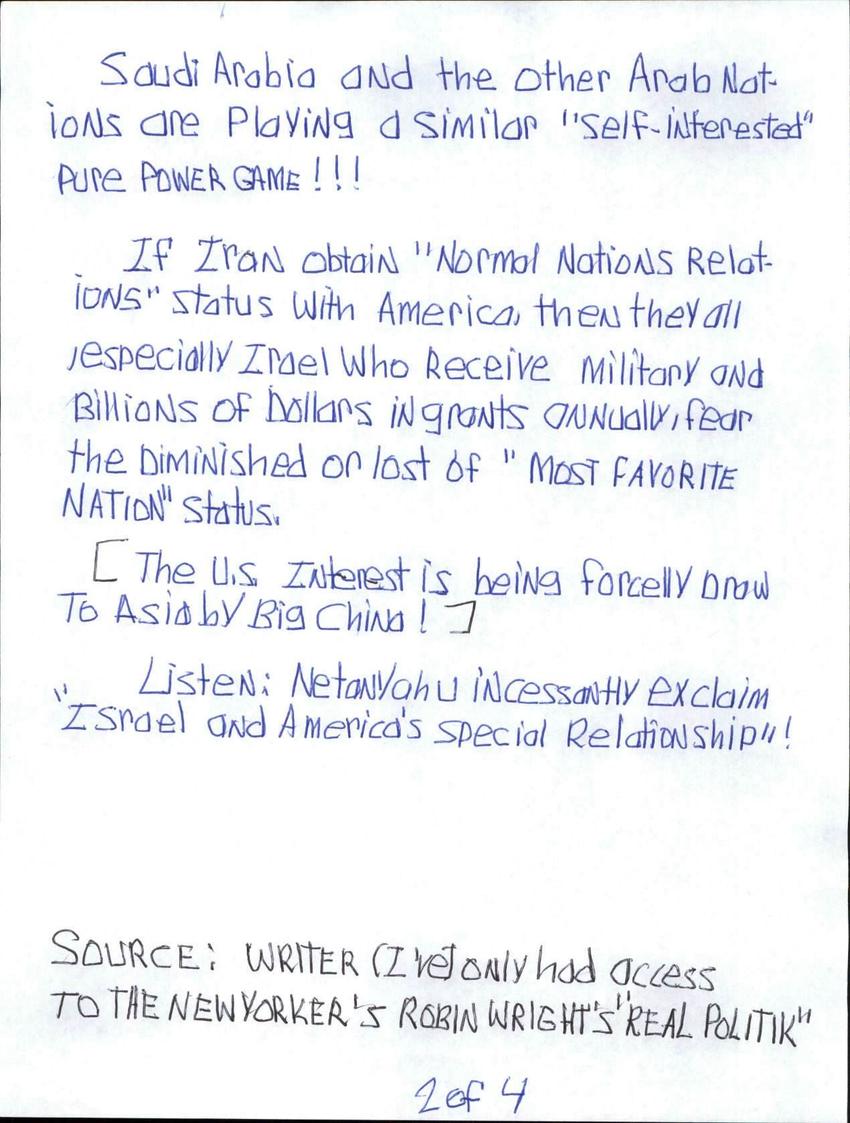 Saudi Arabia and the other Arab Nat-
ions are Playing a similar "self-interested"
pure POWER GAME!!!
If Iran obtain "Normal Nations Relat-
ions" status with America, then they all
,especially Irael Who Receive military and
Billions of Dollars in grants annually, fear
the Diminished or lost of "MOST FAVORITE
NATION" status.
[The U.S. Interest is being forcelly Draw
To Asia by Big China!]
Listen: Netanyahu incessantly exclaim
"Israel and America's special Relationship"!
SOURCE: WRITER (I've] only had access
TO THE NEW YORKER'S ROBIN WRIGHT'S "REAL POLITIK"
2 of 4